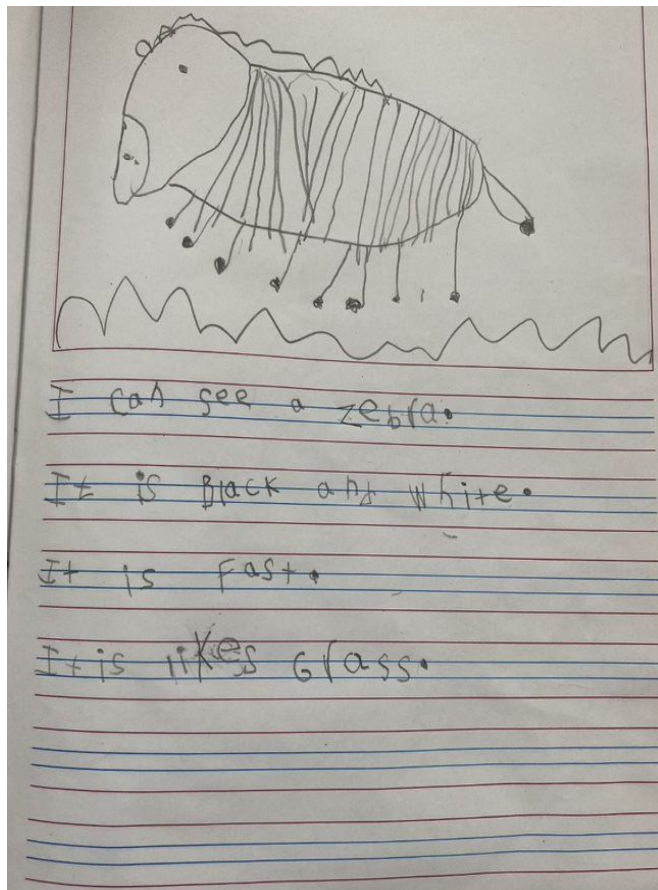 I can see a zebra.
It is Black and white.
It is Fast.
It is likes Grass.